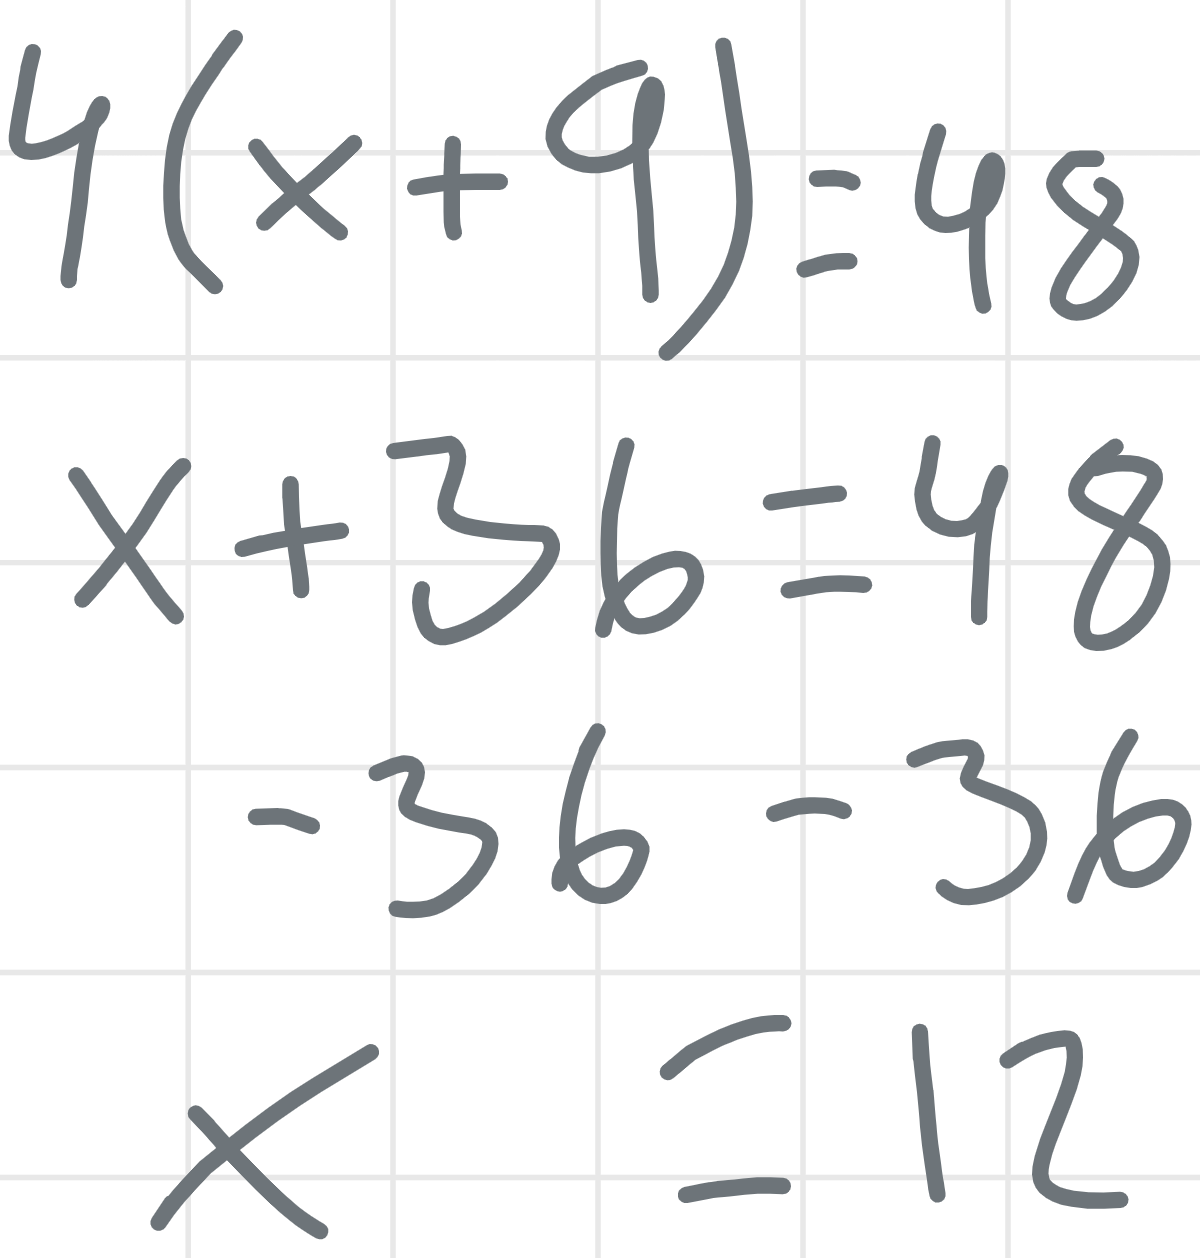 4(x+9)=48
x+36=48
-36 -36
x = 12